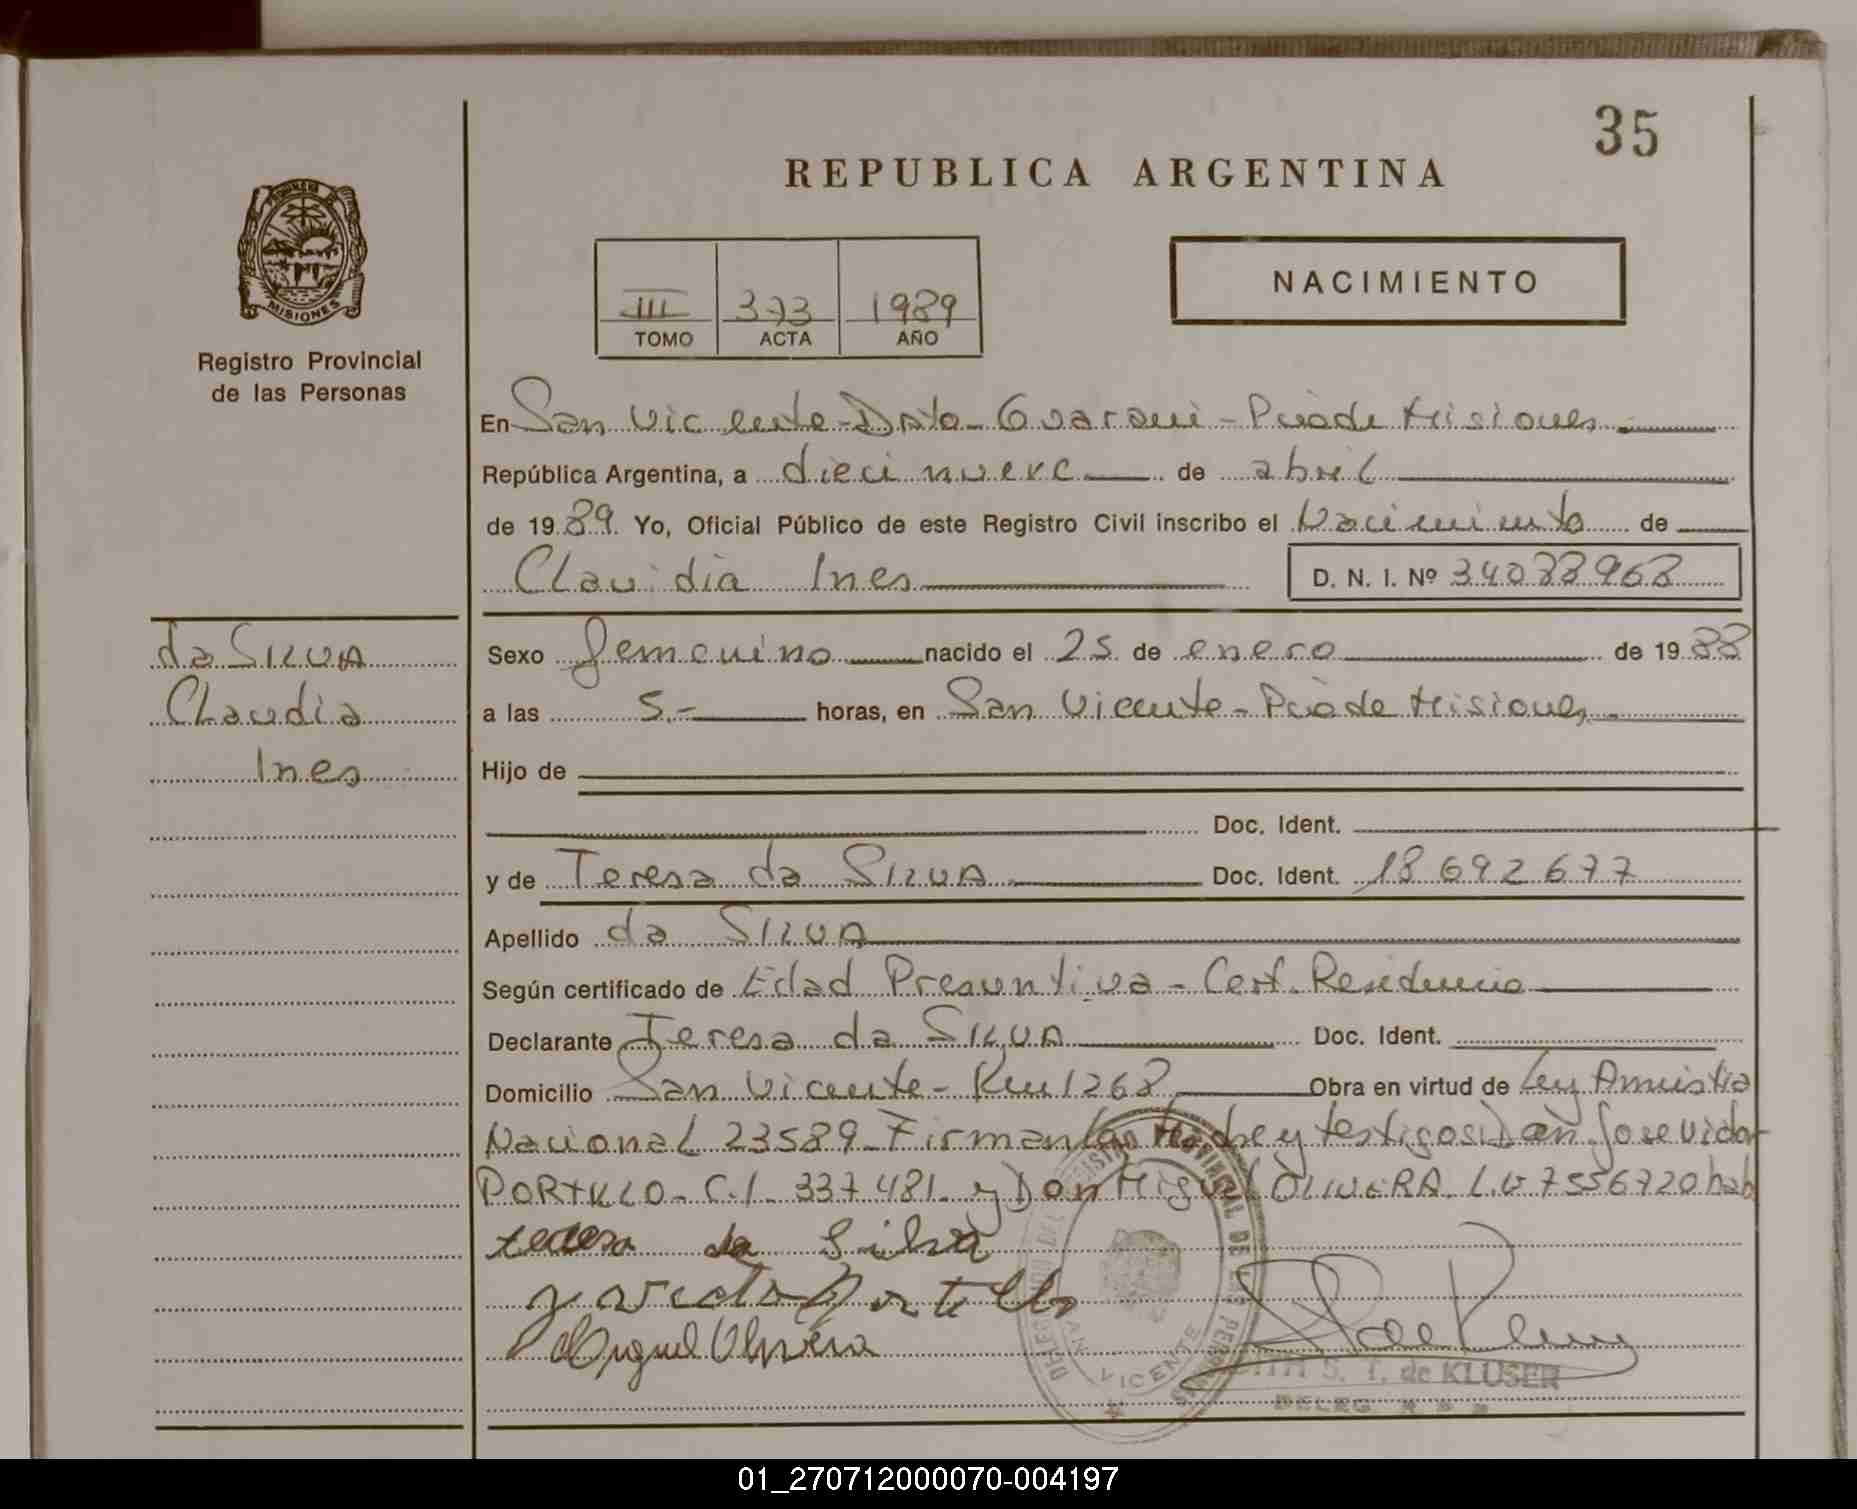 35
REPUBLICA ARGENTINA
NACIMIENTO
III 373 1989
TOMO ACTA AÑO
MISIONES
Registro Provincial
de las Personas
En San Vicente - Dpto - Guarani - Pcia de Misiones
República Argentina, a diecinueve de abril
de 1989. Yo, Oficial Público de este Registro Civil inscribo el Nacimiento de
Claudia Ines D. N. I. Nº 34088968
da SILVA
Claudia
Ines
Sexo femenino nacido el 25 de enero de 1988
a las 5.- horas, en San Vicente - Pcia de Misiones
Hijo de
Doc. Ident.
y de Teresa da SILVA Doc. Ident. 18692677
Apellido da SILVA
Según certificado de Edad Presuntiva - Cert. Residencia
Declarante Teresa da SILVA Doc. Ident.
Domicilio San Vicente - Km 1268 Obra en virtud de Ley Amnistia
Nacional 23589 - Firman la Madre y testigos: Don Jose vidor
PORTILLO - C.I. 337481 y Don Miguel OLIVERA L.E 7556720 hab
teresa da Silva
Portillo
Miguel Olivera
S. T. de KLUSER
DELEG.
SAN VICENTE
01_270712000070-004197